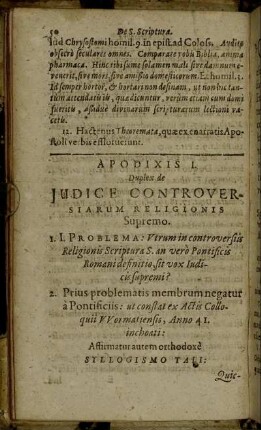 50 De S. Scriptura.
iud Chrysostomi homil. 9. in epist. ad Coloss. Audite
obsecro seculares omnes. Comparate vobis Biblia, animæ
pharmaca. Hinc tibi sume solamen mali sive damnum e-
venerit, sive mors, sive amissio domesticorum. Et humil. 3.
Id semper hortor, & hortari non desinam, ut non hic tan-
tum attendatis iis, quæ dicuntur, verùm etiam cum domi
fueritis, assiduè divinarum scripturarum lectioni va-
cetis.
12. Hactenus Theoremata, quæ ex enarratis Apo-
stoli verbis effloruerunt.
APODIXIS I.
Duplex de
JUDICE CONTROVER-
SIARUM RELIGIONIS
Supremo.
1. I. PROBLEMA: Utrum in controversiis
Religionis Scriptura S. an verò Pontificis
Romani definitio, sit vox Judi-
cis supremi?
2. Prius problematis membrum negatur
à Pontificiis: ut constat ex Actis Collo-
quii VVormatiensis, Anno 41.
inchoati:
Affirmatur autem orthodoxè
SYLLOGISMO TALI:
Quic-